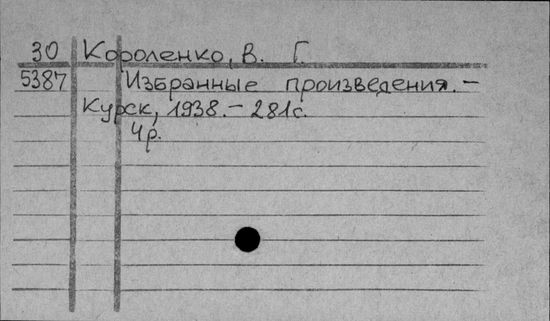 30 Короленко, В. Г.
5387 Избранные произведения. –
Курск, 1938. – 281с.
4р.